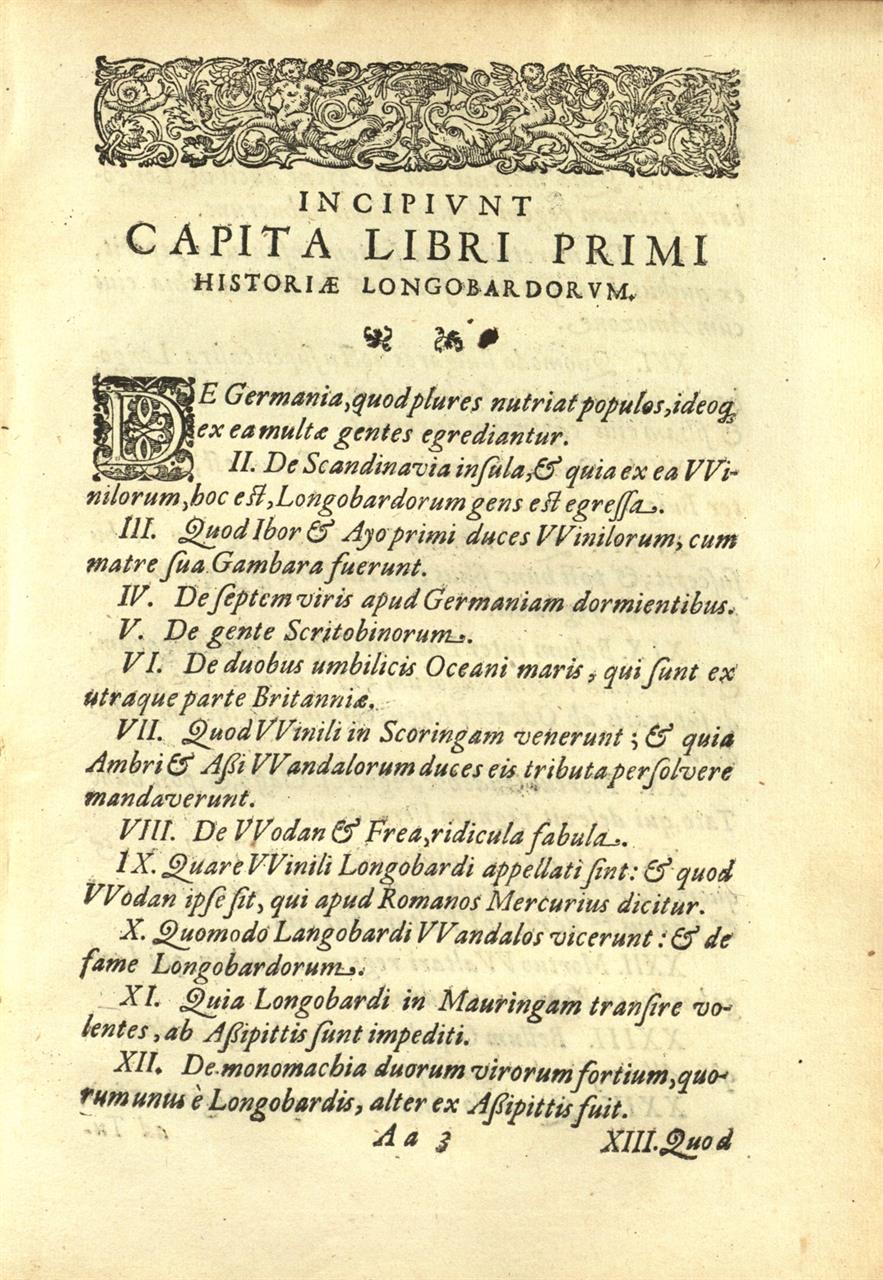 INCIPIVNT
CAPITA LIBRI PRIMI
HISTORIÆ LONGOBARDORVM.
DE Germania, quod plures nutriat populos, ideoq;
ex ea multæ gentes egrediantur.
II. De Scandinavia insula, & quia ex ea VVi-
nilorum, hoc est, Longobardorum gens est egressa.
III. Quod Ibor & Ayo primi duces VVinilorum, cum
matre sua Gambara fuerunt.
IV. De septem viris apud Germaniam dormientibus.
V. De gente Scritobinorum.
VI. De duobus umbilicis Oceani maris, qui sunt ex
utraque parte Britanniæ.
VII. Quod VVinili in Scoringam venerunt; & quia
Ambri & Aßi VVandalorum duces eis tributa persolvere
mandaverunt.
VIII. De VVodan & Frea, ridicula fabula.
IX. Quare VVinili Longobardi appellati sint: & quod
VVodan ipse sit, qui apud Romanos Mercurius dicitur.
X. Quomodo Langobardi VVandalos vicerunt: & de
fame Longobardorum.
XI. Quia Longobardi in Mauringam transire vo-
lentes, ab Aßipittis sunt impediti.
XII. De monomachia duorum virorum fortium, quo-
rum unus è Longobardis, alter ex Aßipittis fuit.
Aa 3 XIII. Quod